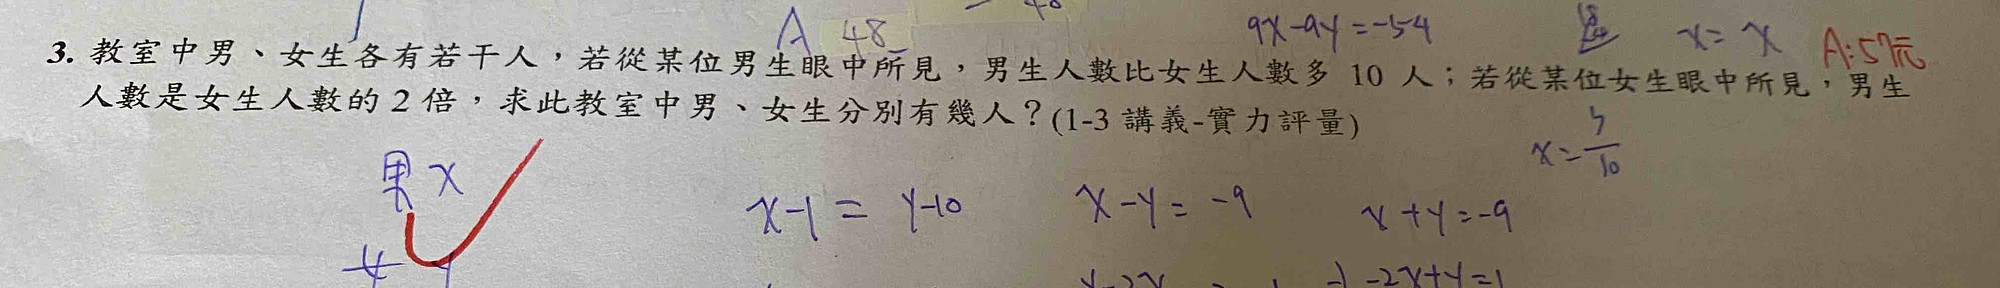 A 48
9x-9y=-54
x= x
A:57元
3. 教室中男、女生各有若干人，若從某位男生眼中所見，男生人數比女生人數多 10 人；若從某位女生眼中所見，男生
人數是女生人數的 2 倍，求此教室中男、女生分別有幾人？(1-3 講義-實力評量)
男 x
x=5/10
x-1= y-10
x-y=-9
x+y=-9
女 y
-2x+y=1